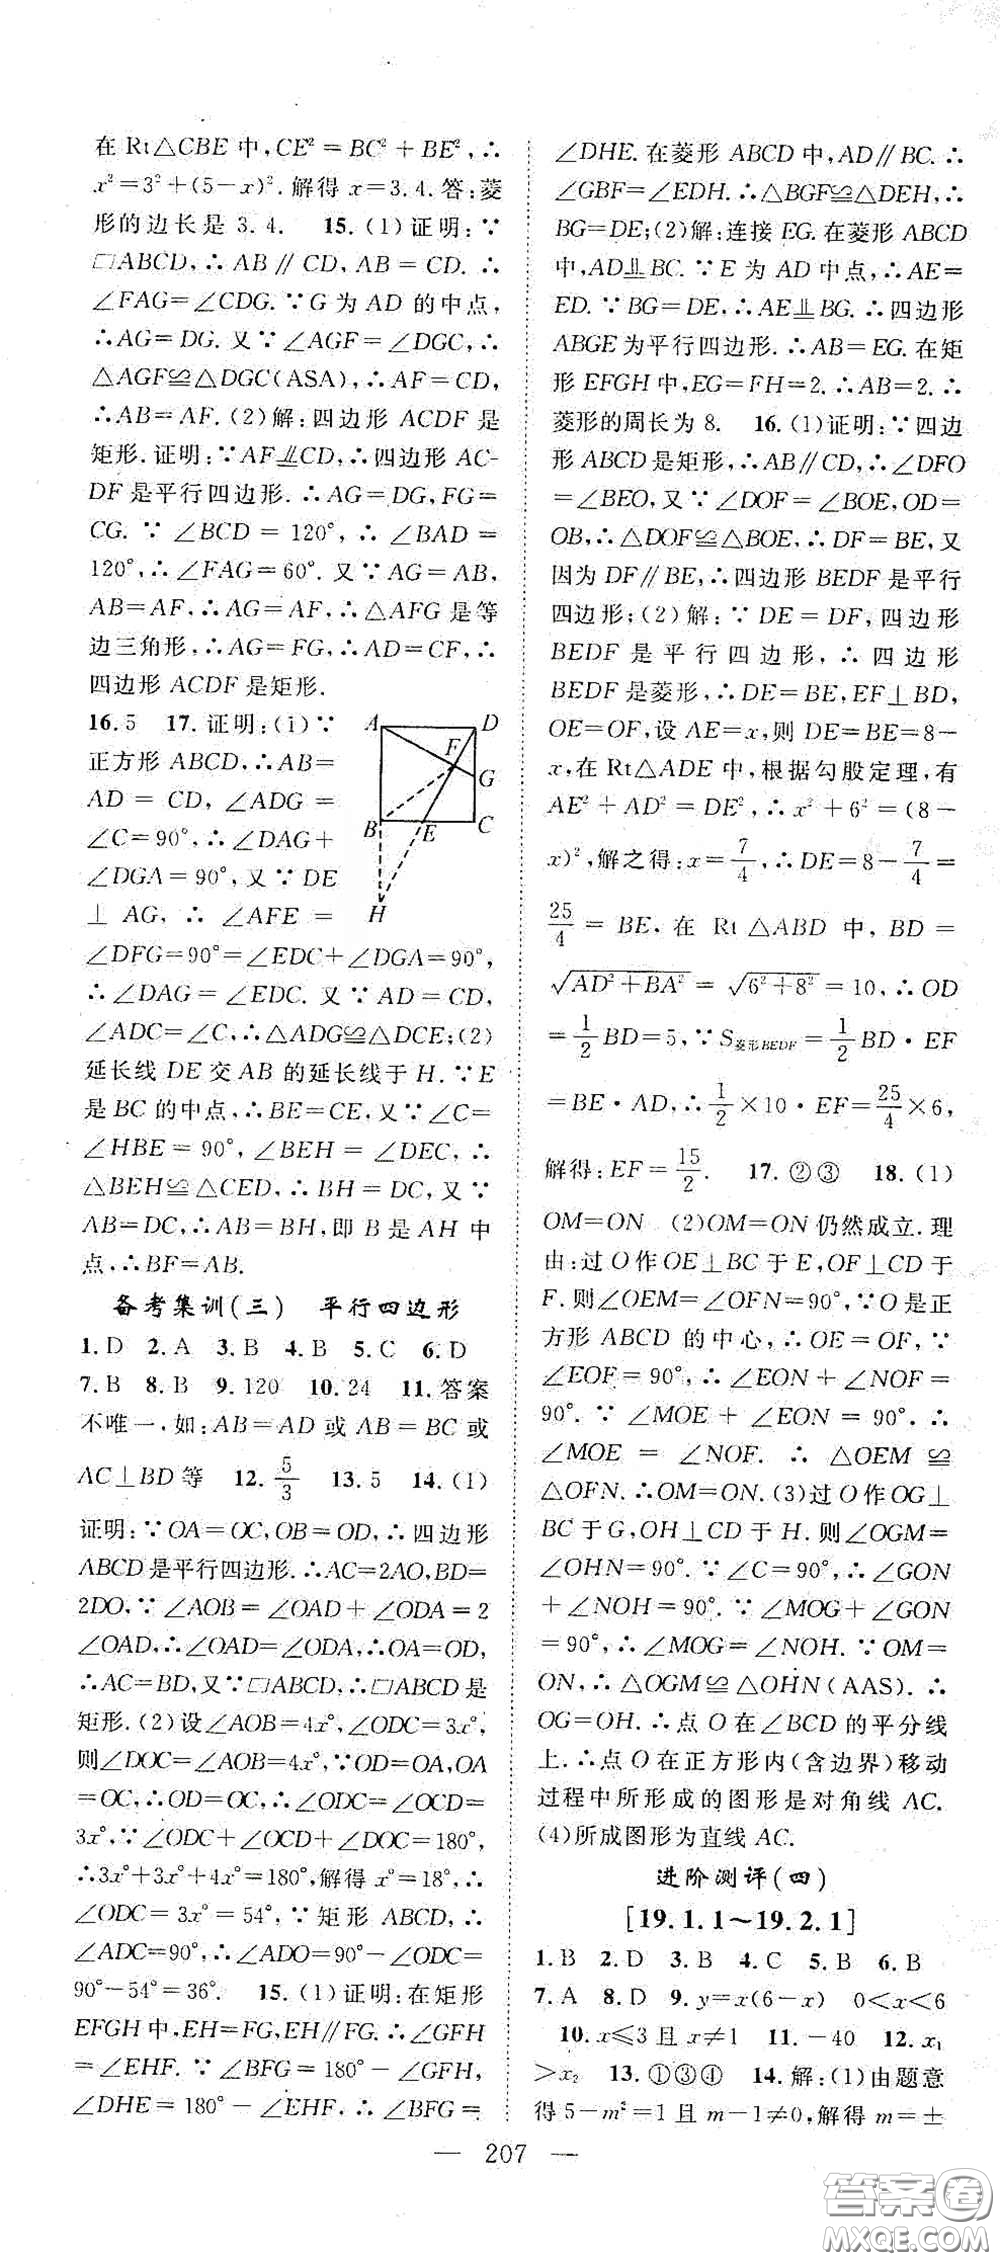 在 Rt△CBE 中,CE²=BC²+BE²,∴
x²=3²+(5-x)².解得 x=3.4.答:菱
形的边长是 3.4. 15.(1)证明:∵
□ABCD,∴AB∥CD,AB=CD.∴
∠FAG=∠CDG.∵G 为 AD 的中点,
∴AG=DG.又∵∠AGF=∠DGC,∴
△AGF≌△DGC(ASA),∴AF=CD,
∴AB=AF.(2)解:四边形 ACDF 是
矩形.证明:∵AF⫫CD,∴四边形 AC-
DF 是平行四边形.∴AG=DG,FG=
CG.∵∠BCD=120°,∴∠BAD=
120°,∴∠FAG=60°.又∵AG=AB,
AB=AF,∴AG=AF,∴△AFG 是等
边三角形,∴AG=FG,∴AD=CF,∴
四边形 ACDF 是矩形.
16.5 17.证明:(1)∵
正方形 ABCD,∴AB=
AD=CD,∠ADG=
∠C=90°,∴∠DAG+
∠DGA=90°,又∵DE
⊥AG,∴∠AFE=
∠DFG=90°=∠EDC+∠DGA=90°,
∴∠DAG=∠EDC.又∵AD=CD,
∠ADC=∠C,∴△ADG≌△DCE;(2)
延长线 DE 交 AB 的延长线于 H.∵E
是 BC 的中点,∴BE=CE,又∵∠C=
∠HBE=90°,∠BEH=∠DEC,∴
△BEH≌△CED,∴BH=DC,又∵
AB=DC,∴AB=BH,即 B 是 AH 中
点,∴BF=AB.
A D F G B E C H
备考集训(三) 平行四边形
1.D 2.A 3.B 4.B 5.C 6.D
7.B 8.B 9.120 10.24 11.答案
不唯一,如:AB=AD 或 AB=BC 或
AC⊥BD 等 12.5/3 13.5 14.(1)
证明:∵OA=OC,OB=OD,∴四边形
ABCD 是平行四边形.∴AC=2AO,BD=
2DO,∵∠AOB=∠OAD+∠ODA=2
∠OAD,∴∠OAD=∠ODA,∴OA=OD,
∴AC=BD,又∵□ABCD,∴□ABCD 是
矩形.(2)设∠AOB=4x°,∠ODC=3x°,
则∠DOC=∠AOB=4x°∵OD=OA,OA
=OC,∴OD=OC,∴∠ODC=∠OCD=
3x°,∵∠ODC+∠OCD+∠DOC=180°,
∴3x°+3x°+4x°=180°,解得 x°=18°,∴
∠ODC=3x°=54°,∵矩形 ABCD,∴
∠ADC=90°,∴∠ADO=90°-∠ODC=
90°-54°=36°. 15.(1)证明:在矩形
EFGH 中,EH=FG,EH∥FG.∴∠GFH
=∠EHF.∵∠BFG=180°-∠GFH,
∠DHE=180°-∠EHF.∴∠BFG=
∠DHE.在菱形 ABCD 中,AD∥BC.∴
∠GBF=∠EDH.∴△BGF≌△DEH,∴
BG=DE;(2)解:连接 EG.在菱形 ABCD
中,AD⫫BC.∵E 为 AD 中点,∴AE=
ED.∵BG=DE,∴AE⫫BG.∴四边形
ABGE 为平行四边形.∴AB=EG.在矩
形 EFGH 中,EG=FH=2.∴AB=2.∴
菱形的周长为 8. 16.(1)证明:∵四边
形 ABCD 是矩形,∴AB∥CD,∴∠DFO
=∠BEO,又∵∠DOF=∠BOE,OD=
OB,∴△DOF≌△BOE,∴DF=BE,又
因为 DF∥BE,∴四边形 BEDF 是平行
四边形;(2)解:∵DE=DF,四边形
BEDF 是平行四边形,∴四边形
BEDF 是菱形,∴DE=BE,EF⊥BD,
OE=OF,设 AE=x,则 DE=BE=8-
x,在 Rt△ADE 中,根据勾股定理,有
AE²+AD²=DE²,∴x²+6²=(8-
x)²,解之得:x=7/4,∴DE=8-7/4=
25/4=BE,在 Rt△ABD 中,BD=
√AD²+BA²=√6²+8²=10,∴OD
=1/2BD=5,∵S菱形BEDF=1/2BD·EF
=BE·AD,∴1/2×10·EF=25/4×6,
解得:EF=15/2. 17.②③ 18.(1)
OM=ON (2)OM=ON 仍然成立.理
由:过 O 作 OE⊥BC 于 E,OF⊥CD 于
F.则∠OEM=∠OFN=90°,∵O 是正
方形 ABCD 的中心,∴OE=OF,∵
∠EOF=90°,∴∠EON+∠NOF=
90°.∵∠MOE+∠EON=90°.∴
∠MOE=∠NOF.∴△OEM≌
△OFN.∴OM=ON.(3)过 O 作 OG⊥
BC 于 G,OH⊥CD 于 H.则∠OGM=
∠OHN=90°.∵∠C=90°,∴∠GON
+∠NOH=90°.∵∠MOG+∠GON
=90°,∴∠MOG=∠NOH.∵OM=
ON,∴△OGM≌△OHN(AAS).∴
OG=OH.∴点 O 在∠BCD 的平分线
上.∴点 O 在正方形内(含边界)移动
过程中所形成的图形是对角线 AC.
(4)所成图形为直线 AC.
进阶测评(四)
[19.1.1~19.2.1]
1.B 2.D 3.B 4.C 5.B 6.B
7.A 8.D 9.y=x(6-x) 0<x<6
10.x⩽3 且 x≠1 11.-40 12.x₁
>x₂ 13.①③④ 14.解:(1)由题意
得 5-m²=1 且 m-1≠0,解得 m=±
— 207 —
答案卷
MXQE.COM